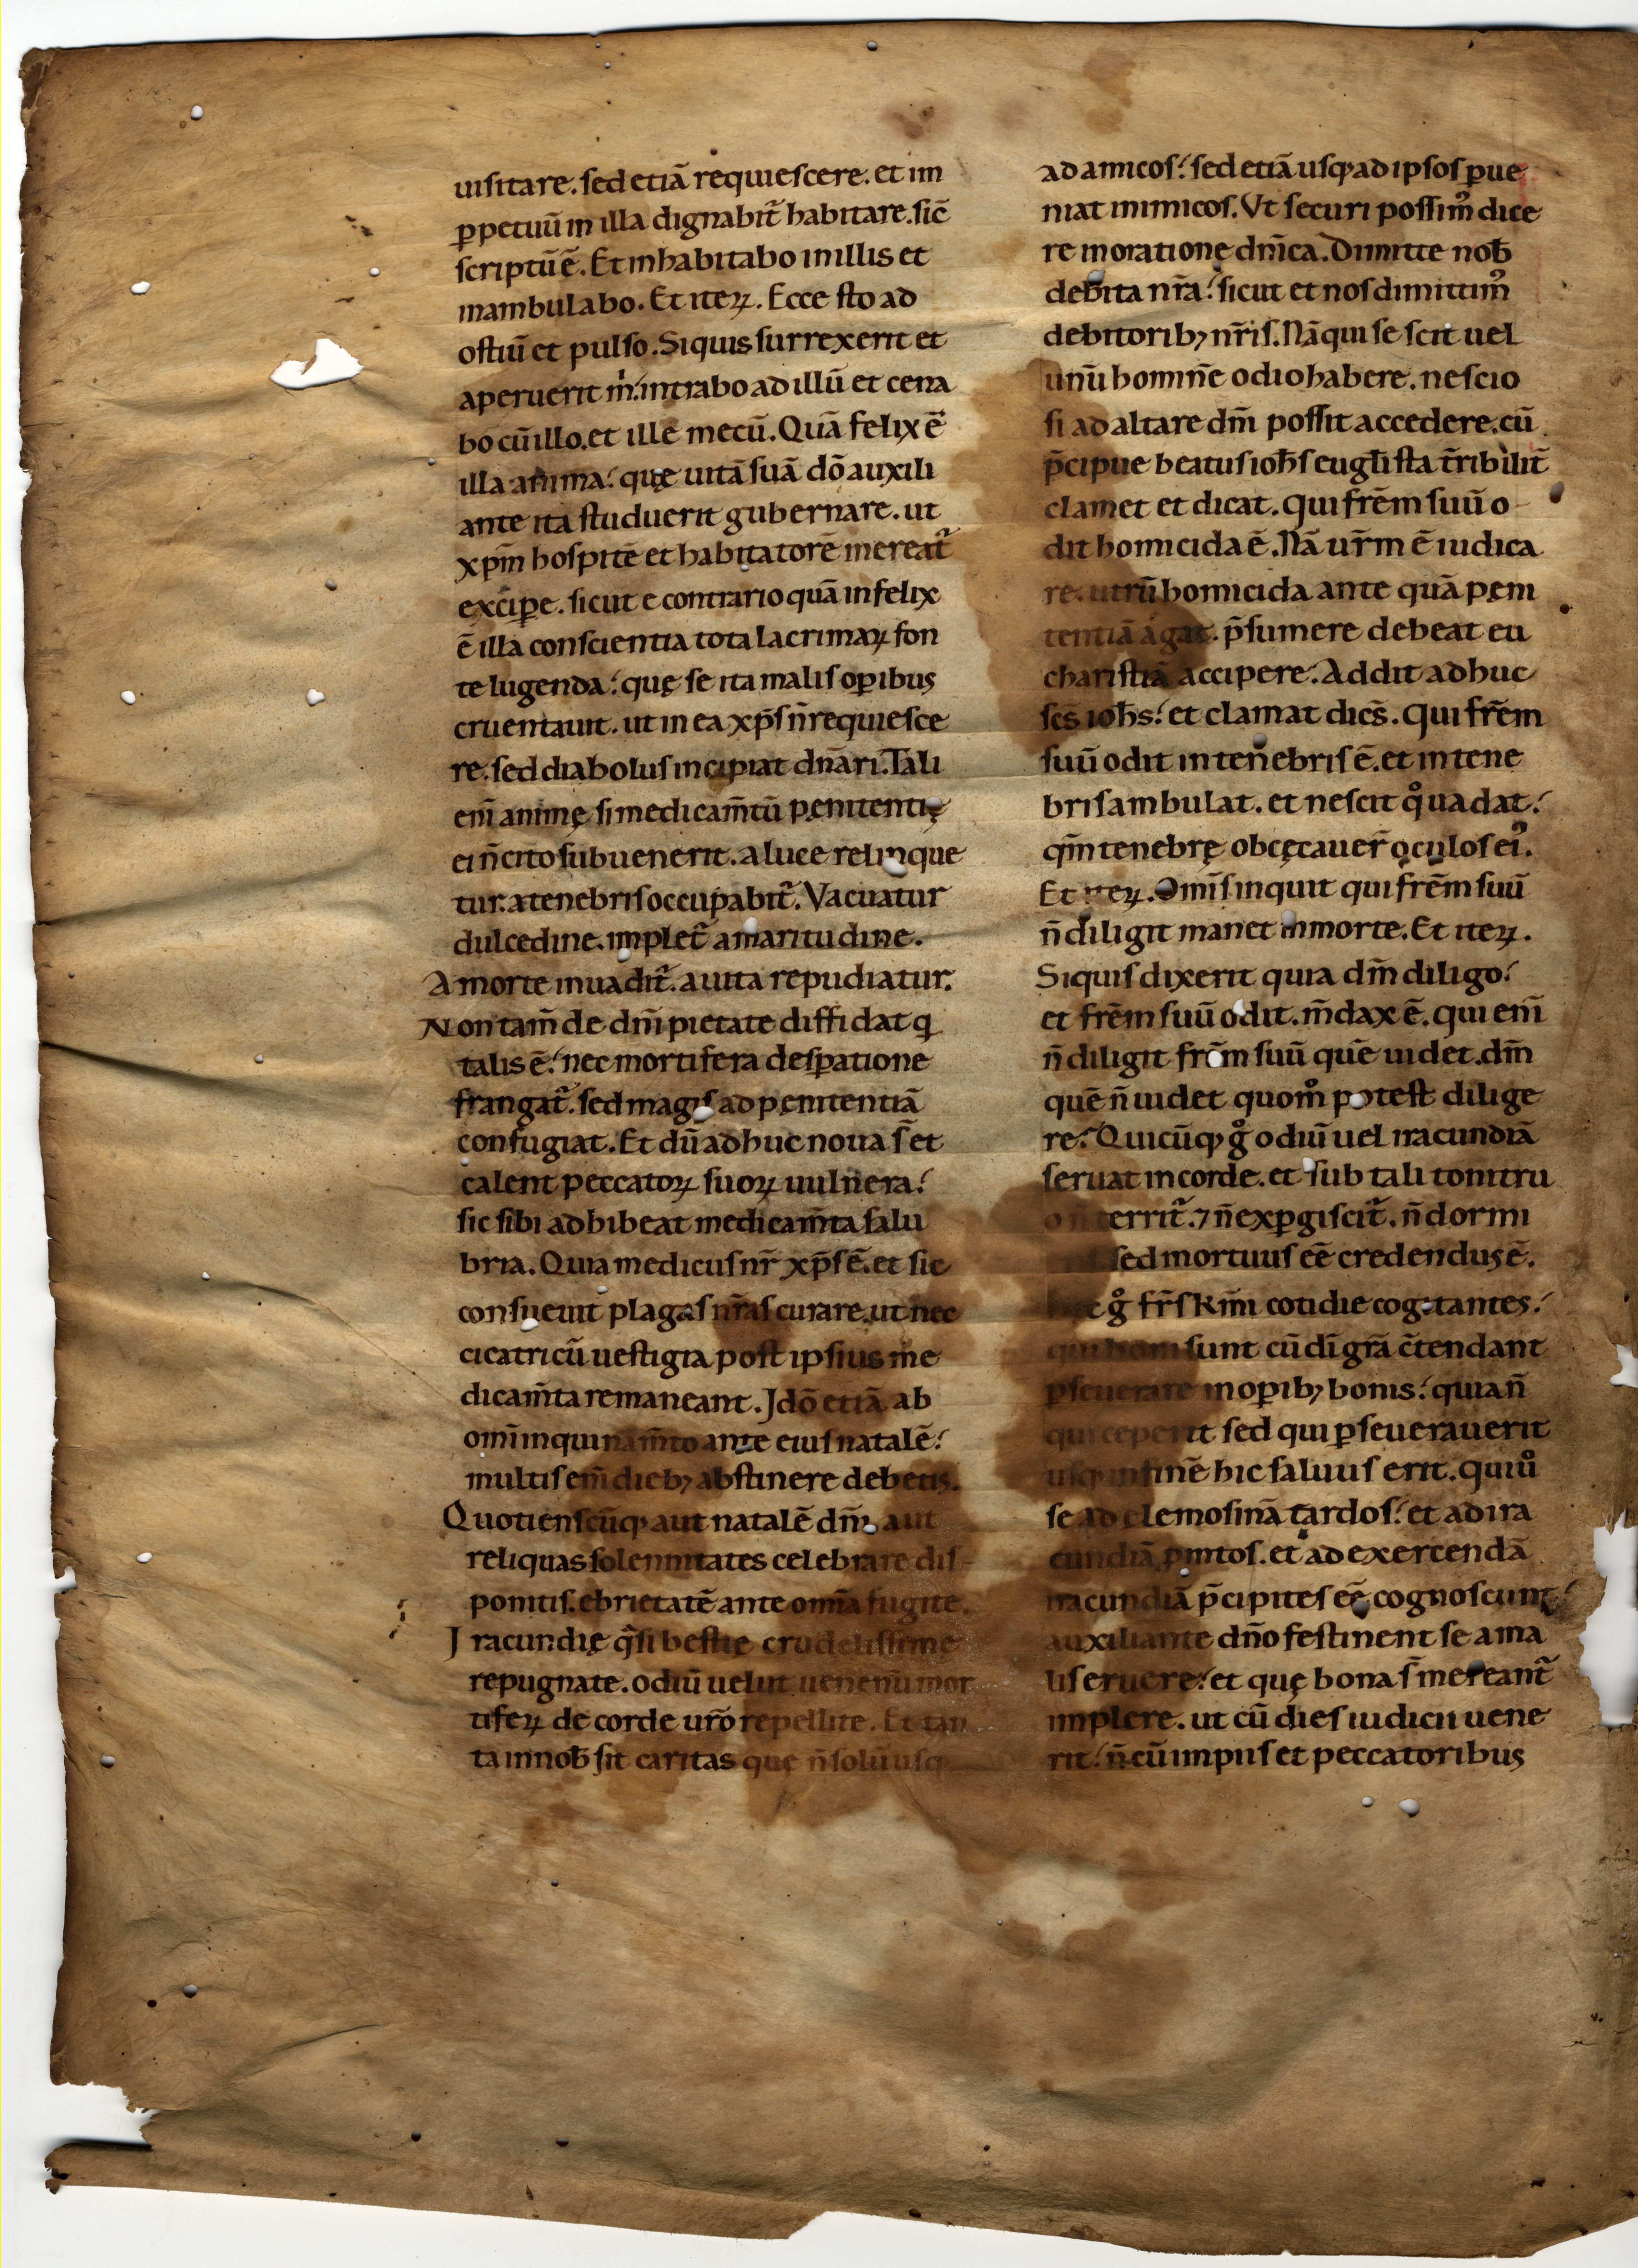 uisitare. sed etiā requiescere. et im
ꝑpetuū in illa dignabit̄ habitare. sic̄
scriptū ē. Et inhabitabo in illis et
inambulabo. Et iteꝝ. Ecce sto ad
ostiū et pulso. Siquis surrexerit et
aperuerit m̄. intrabo ad illū et cena
bo cū illo. et ille mecū. Quā felix ē
illa anima. quę uitā suā dō auxili
ante ita studuerit gubernare. ut
xp̄m hospitē et habitatorē mereat̄
excipe. sicut e contrario quā infelix
ē illa conscientia tota lacrimaꝝ fon
te lugenda. quę se ita malis oꝑibus
cruentauit. ut in ea xp̄s n̄ requiesce
re. sed diabolus incipiat dn̄ari. Tali
eni̅ animę si medicam̄tū pęnitentię
ei n̄ cito subuenerit. a luce relinque
tur. a tenebris occupabit̄. Vacuatur
dulcedine. implet̄ amaritudine.
A morte inuadit̄. a uita repudiatur.
Non tam̄ de dn̄i pietate diffidat q
talis ē. nec mortifera desꝑatione
frangat̄. sed magis ad pęnitentiā
confugiat. Et dū adhuc noua s̄ et
calent peccatoꝝ suoꝝ uulnera.
sic sibi adhibeat medicam̄ta salu
bria. Quia medicus nr̄ xp̄s ē. et sic
consueuit plagas nr̄as curare. ut nec
cicatricū uestigia post ipsius me
dicam̄ta remaneant. Idō etiā ab
omī inquinam̄to ante eius natalē.
multis em̄ dieb; abstinere debetis.
Quotienscūq; aut natalē dn̄i. aut
reliquas solennitates celebrare dis
ponitis. ebrietatē ante omīa fugite.
Iracundię q̄si bestię crudelissime
repugnate. odiū uelut uenenū mor
tiferꝝ de corde ur̄o repellite. Et tan
ta in nob̄ sit caritas quę n̄ solū usq
ad amicos. sed etiā usq; ad ipsos ꝑue
niat inimicos. Vt securi possim᷒ dice
re in oratione dn̄ica. Dimitte nob̄
debita nr̄a. sicut et nos dimittim᷒
debitorib; nr̄is. Nā qui se scit uel
unū hominē odio habere. nescio
si ad altare dn̄i possit accedere. cū
p̄cipue beatus ioh̄s eugl̄ista t̄ribilit̄
clamet et dicat. Qui fr̄em suū o
dit homicida ē. Nā ur̄m ē iudica
re. utrū homicida ante quā pęni
tentiā agat. p̄sumere debeat eu
charistiā accipere. Addit adhuc
sc̄s ioh̄s. et clamat dicēs. Qui fr̄em
suū odit in tenebris ē. et in tene
bris ambulat. et nescit qͦ uadat.
qm̄ tenebrę obcęcauer̄ oculos ei᷒.
Et iteꝝ. Omīs inquit qui fr̄em suū
n̄ diligit manet in morte. Et iteꝝ.
Siquis dixerit quia dm̄ diligo.
et fr̄em suū odit. m̄dax ē. qui eni̅
n̄ diligit fr̄em suū quē uidet. dm̄
quē n̄ uidet quomͦ potest dilige
re. Quicūq; gͦ odiū uel iracundiā
seruat in corde. et sub tali tonitru
o n̄ territ̄. ⁊ n̄ exꝑgiscit̄. n̄ dormi
sed mortuus eē credendus ē.
gͦ fr̄s km̄i cotidie cogitantes.
qui boni sunt cū dī gr̄a c̄tendant
ꝑseuerare in oꝑib; bonis. quia n̄
qui ceperit sed qui ꝑseuerauerit
usq; in finē hic saluus erit. qui uͦ
se ad elemosinā tardos. et ad ira
cundiā p̄mtos. et ad exercendā
iracundiā p̄cipites eē cognoscunt.
auxiliante dn̄o festinent se a ma
lis eruere. et quę bona s̄ mereant̄
implere. ut cū dies iudicii uene
rit. n̄ cū impiis et peccatoribus